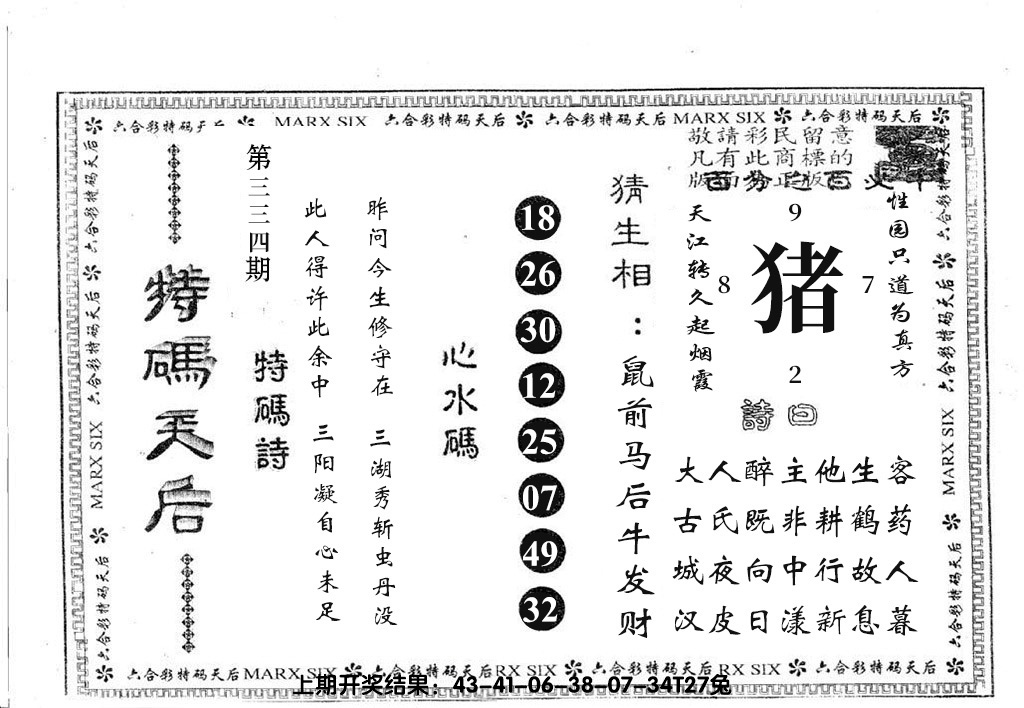 六合彩特码天后 MARX SIX 六合彩特码天后 六合彩特码天后 MARX SIX 六合彩特码天后
敬請彩民留意
凡有此商標的
版面為正版
第三三四期
特碼天后
特碼詩
昨问今生修守在 三湖秀斩虫丹没
此人得许此余中 三阳凝自心未足
心水碼
18
26
30
12
25
07
49
32
猜生相:鼠前马后牛发财
性园只道为真方
天江转久起烟霞
9
8
猪
7
2
詩曰
大人醉主他生客
古氏既非耕鹤药
城夜向中行故人
汉皮日漾新息暮
六合彩特码天后 MARX SIX 六合彩特码天后
六合彩特码天后 MARX SIX 六合彩特码天后
六合彩特码天后 MARX SIX 六合彩特码天后 RX SIX 六合彩特码天后 RX SIX 六合彩特码天后
上期开奖结果：43-41-06-38-07-34T27兔